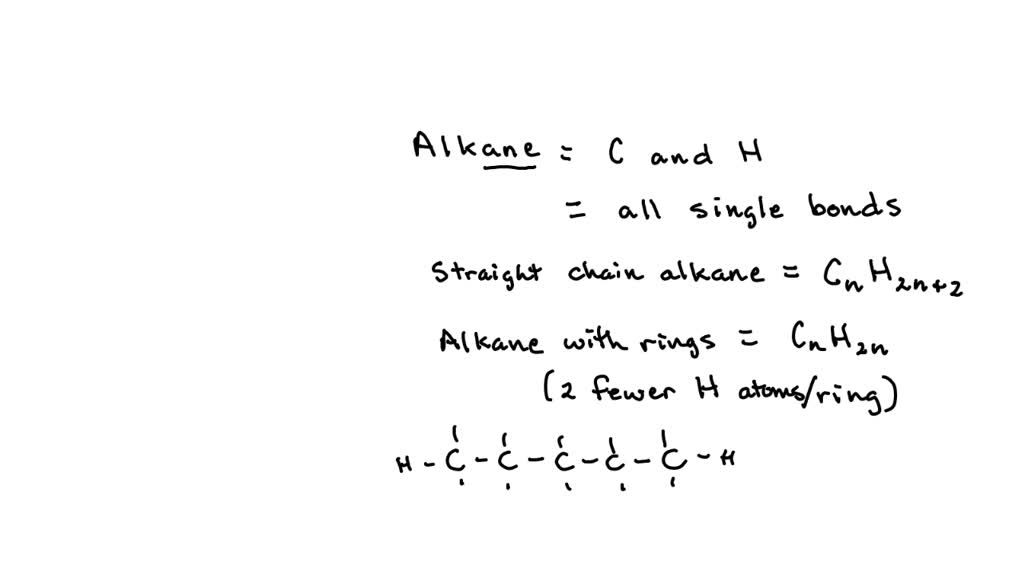 Alkane = C and H
= all single bonds
Straight chain alkane = CnH2n+2
Alkane with rings = CnH2n
(2 fewer H atoms/ring)
H - C - C - C - C - C - H